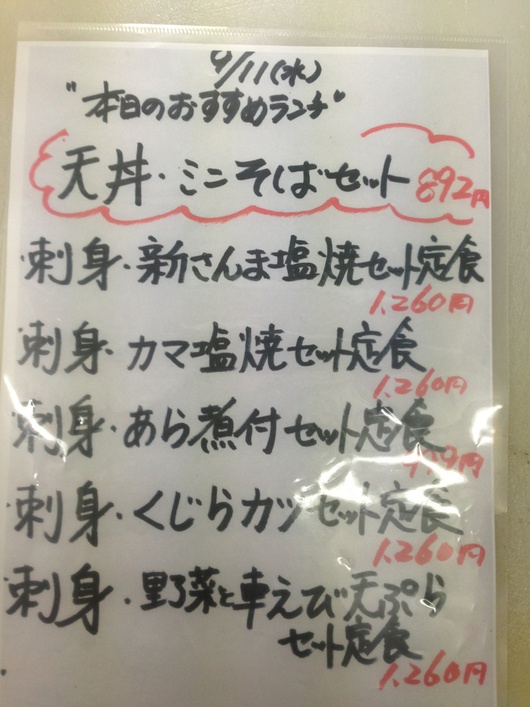 9/11(水)
"本日のおすすめランチ"
天丼・ミニそばセット 892円
刺身・新さんま塩焼セット定食
1,260円
刺身・カマ塩焼セット定食
1,260円
刺身・あら煮付セット定食
円
刺身・くじらカツセット定食
1,260円
刺身・野菜と車えび天ぷら
セット定食
1,260円